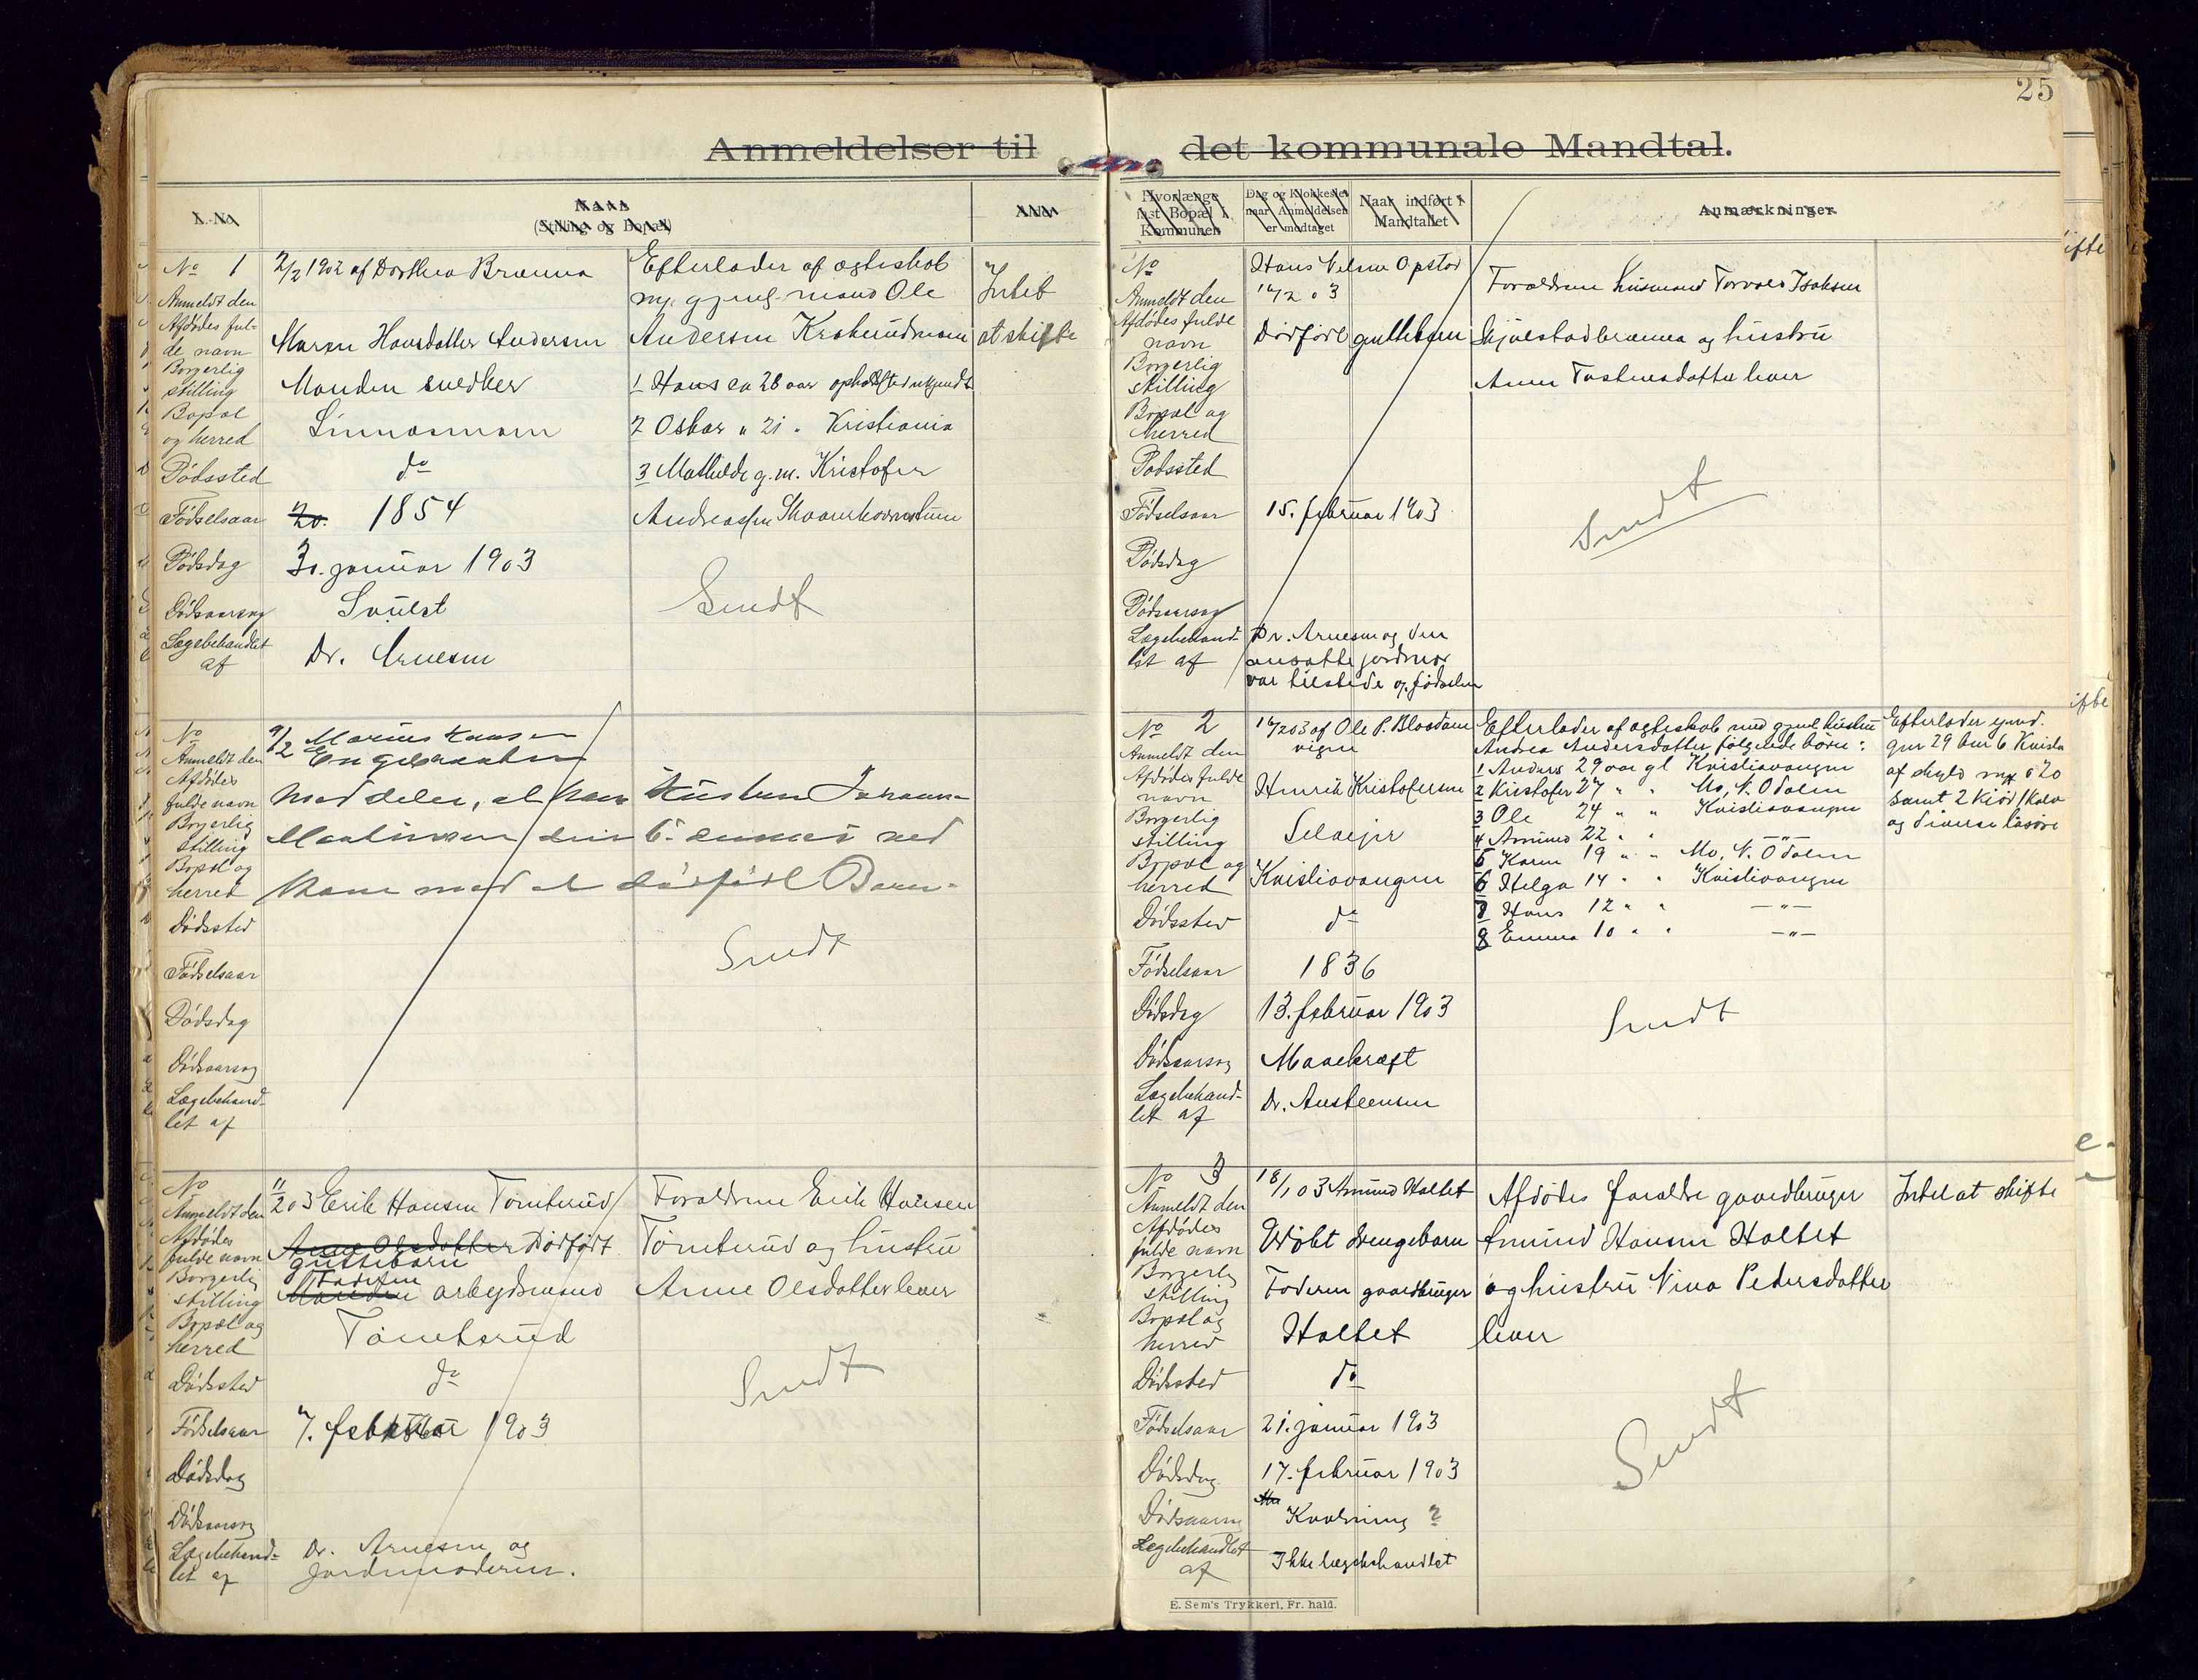 25
Anmeldelser til det kommunale Mandtal.
L.-No
Navn
(Stilling og Bopæl)
Hvorlænge fast Bopæl i Kommunen
Dag og Klokkeslet naar Anmeldelsen er modtaget
Naar indført i Mandtallet
Anmærkninger
No 1
Anmeldt den
2/2 1902 af Dorthea Brænna
Afdødes fulde navn
Maren Hansdatter Andersen
Borgerlig stilling
Manden snedker
Bopæl og herred
Linnesmoen
Dødssted
do
Fødselsaar
20. 1854
Dødsdag
30. januar 1903
Dødsaarsag
Svulst
Lægebehandlet af
Dr. Arnesen
Efterlader af ægteskab
m. gjenl. mand Ole
Andersen
1 Hans ca 28 aar opholdsted ukjendt
2 Oskar " 21 " Kristiania
3 Mathilde g.m. Kristofer
Andreassen
Sendt
Intet
at skifte
No
Anmeldt den
9/2 Marius Hansen
Engebraaten
Afdødes fulde navn
Meddeler, at hans Hustru Johanne
Borgerlig stilling
Martinsen den 6. dennes ned
Bopæl og herred
kom med et dødfødt Barn.
Dødssted
Fødselsaar
Dødsdag
Dødsaarsag
Lægebehandlet af
Sendt
No
Anmeldt den
11/2 03 Erik Hansen Tomterud
Afdødes fulde navn
Anne Olsdatter Dødfødt
guttebarn
Borgerlig stilling
Faderen
Manden arbeydsmand
Bopæl og herred
Tomterud
Dødssted
do
Fødselsaar
7. februar 1903
Dødsdag
Dødsaarsag
Lægebehandlet af
Dr. Arnesen og
Jordmoderen.
Forældrene Erik Hansen
Tomterud og hustru
Anne Olsdatter lever
Sendt
No
Anmeldt den
Hans Nilsen Opstad
16/2 03
Afdødes fulde navn
Dødfødt guttebarn
Borgerlig stilling
Bopæl og herred
Dødssted
Fødselsaar
15. februar 1903
Dødsdag
Dødsaarsag
Lægebehandlet af
Dr. Arnesen og den
ansatte jordmor
var tilstede v. fødselen
Forældrene husmand Torvald Isaksen
Skjulstadbrænna og hustru
Anne lever
Sendt
No 2
Anmeldt den
16/2 03 af Ole P. Bloddam
vigen
Afdødes fulde navn
Henrik Kristofersen
Borgerlig stilling
Seleier
Bopæl og herred
Kvisliavangen
Dødssted
do
Fødselsaar
1836
Dødsdag
13. februar 1903
Dødsaarsag
Mavekræft
Lægebehandlet af
Dr. Austeensen
Efterlader af ægteskab med gjenl. hustru
Andrea Andersdatter følgende børn:
1 Anders 29 aar gl. Kvisliavangen
2 Kristofer 27 " " Mo, N. Odalen
3 Ole 24 " " Kvisliavangen
4 Amund 22 " " —"—
5 Karen 19 " " Mo, N. Odalen
6 Helga 14 " " Kvisliavangen
7 Hans 12 " " —"—
8 Emma 10 " " —"—
Sendt
Efterlader eiend.
gnr 29 bnr 6 Kvisla
af skyld mk 0 20
samt 2 kjør 1 kalv
og diverse løsøre
No 3
Anmeldt den
18/1 03 Amund Holtet
Afdødes fulde navn
Udøbt drengebarn
Borgerlig stilling
Faderen gaardbruger
Bopæl og herred
Holtet
Dødssted
do
Fødselsaar
21. januar 1903
Dødsdag
17. februar 1903
Dødsaarsag
Kvælning ?
Lægebehandlet af
Ikke lægebehandlet
Afdødes forældre gaardbruger
Amund Hansen Holtet
og hustru Nina Pedersdatter
lever
Sendt
Intet at skifte
E. Sem's Trykkeri, Fr. hald.